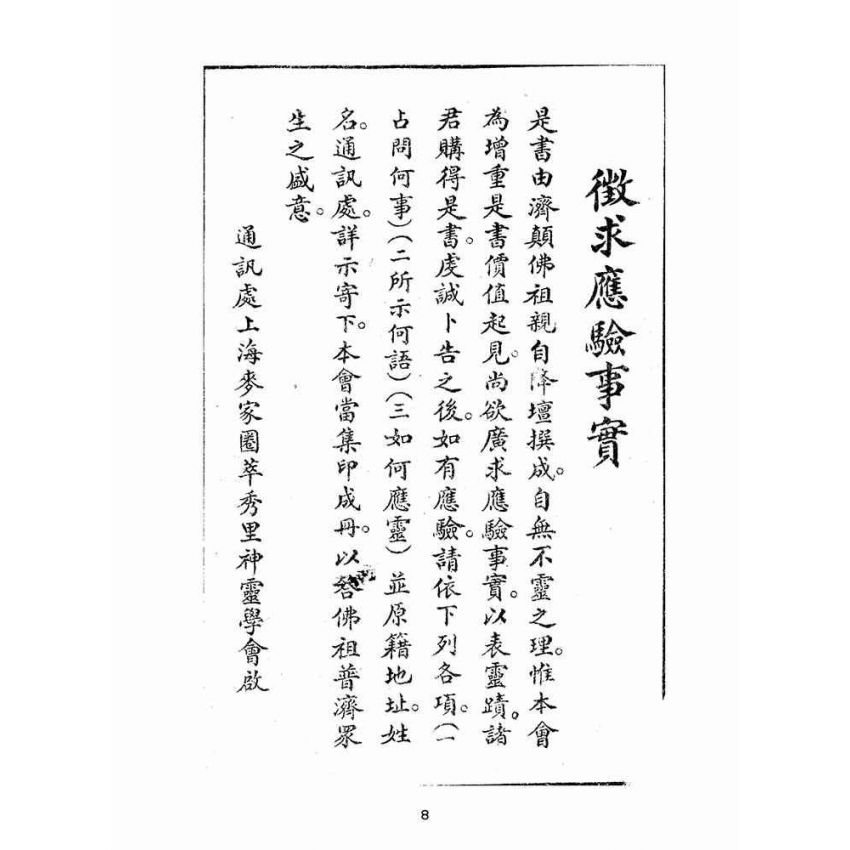 徵求應驗事實
是書由濟顛佛祖親自降壇撰成。自無不靈之理。惟本會
為增重是書價值起見。尚欲廣求應驗事實。以表靈蹟。諸
君購得是書。虔誠卜告之後。如有應驗。請依下列各項。(一
占問何事)(二所示何語)(三如何應靈)並原籍地址。姓
名。通訊處。詳示寄下。本會當集印成冊。以答佛祖普濟眾
生之盛意。
通訊處上海麥家圈萃秀里神靈學會啟
8